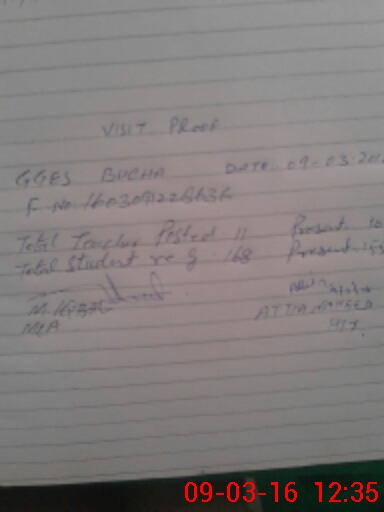 VISIT PROOF
GGES BUCHA DATE: 09-03-201
F No.
Total Teacher Posted 11 Present 10
Total Student reg. 168 Present 155
M. IQBAL
MEA
ATTIA
09-03-16 12:35